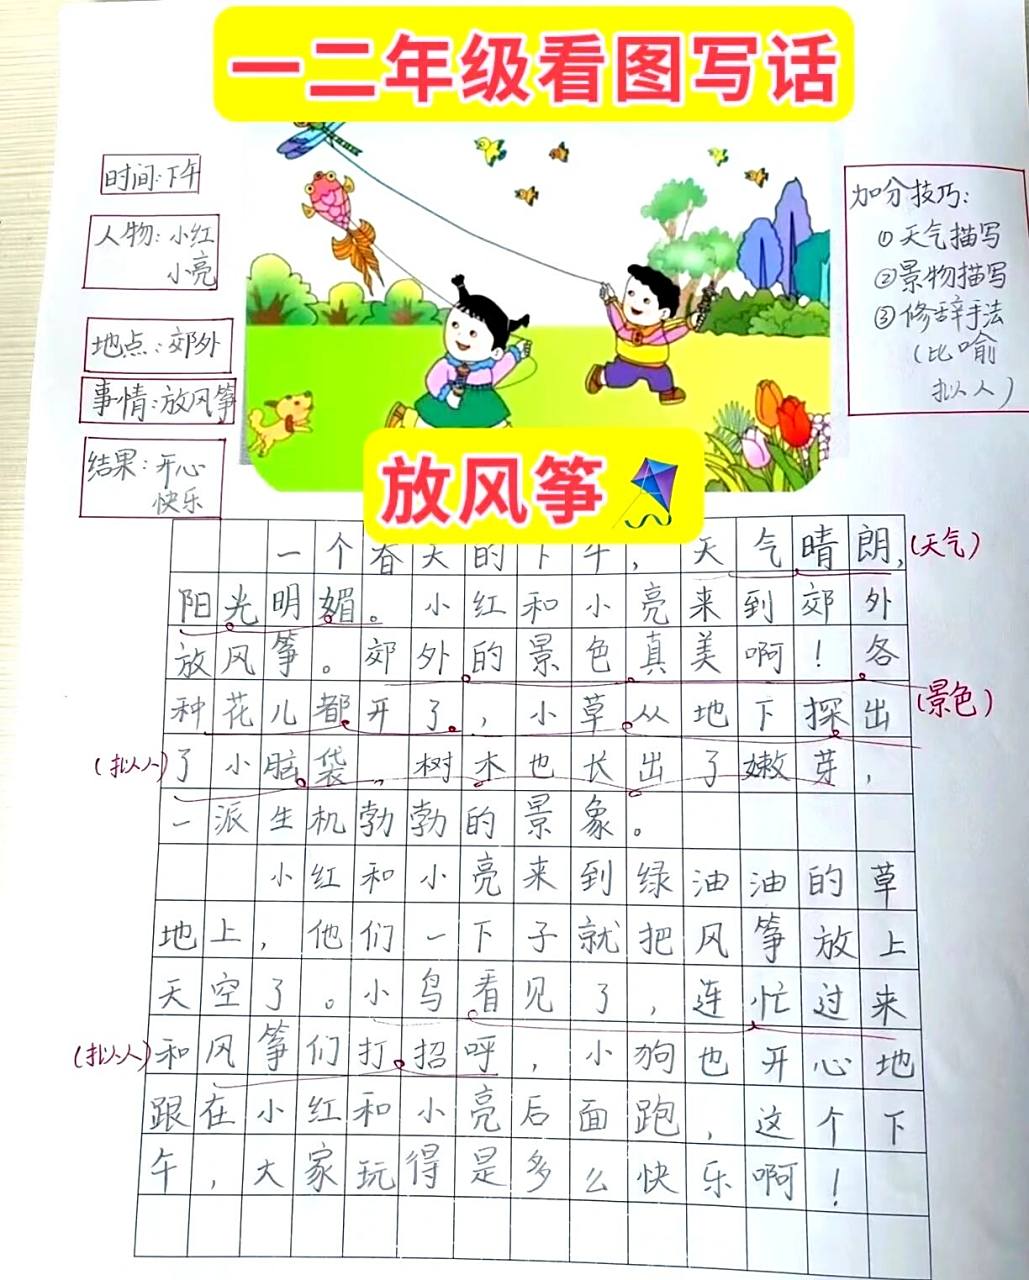 一二年级看图写话
时间:下午
人物:小红
小亮
地点:郊外
事情:放风筝
结果:开心
快乐
加分技巧:
①天气描写
②景物描写
③修辞手法
(比喻
拟人)
放风筝
一个春天的下午,天气晴朗,(天气)
阳光明媚。小红和小亮来到郊外
放风筝。郊外的景色真美啊!各
种花儿都开了,小草从地下探出(景色)
(拟人)了小脑袋,树木也长出了嫩芽,
一派生机勃勃的景象。
小红和小亮来到绿油油的草
地上,他们一下子就把风筝放上
天空了。小鸟看见了,连忙过来
(拟人)和风筝们打招呼,小狗也开心地
跟在小红和小亮后面跑,这个下
午,大家玩得是多么快乐啊!